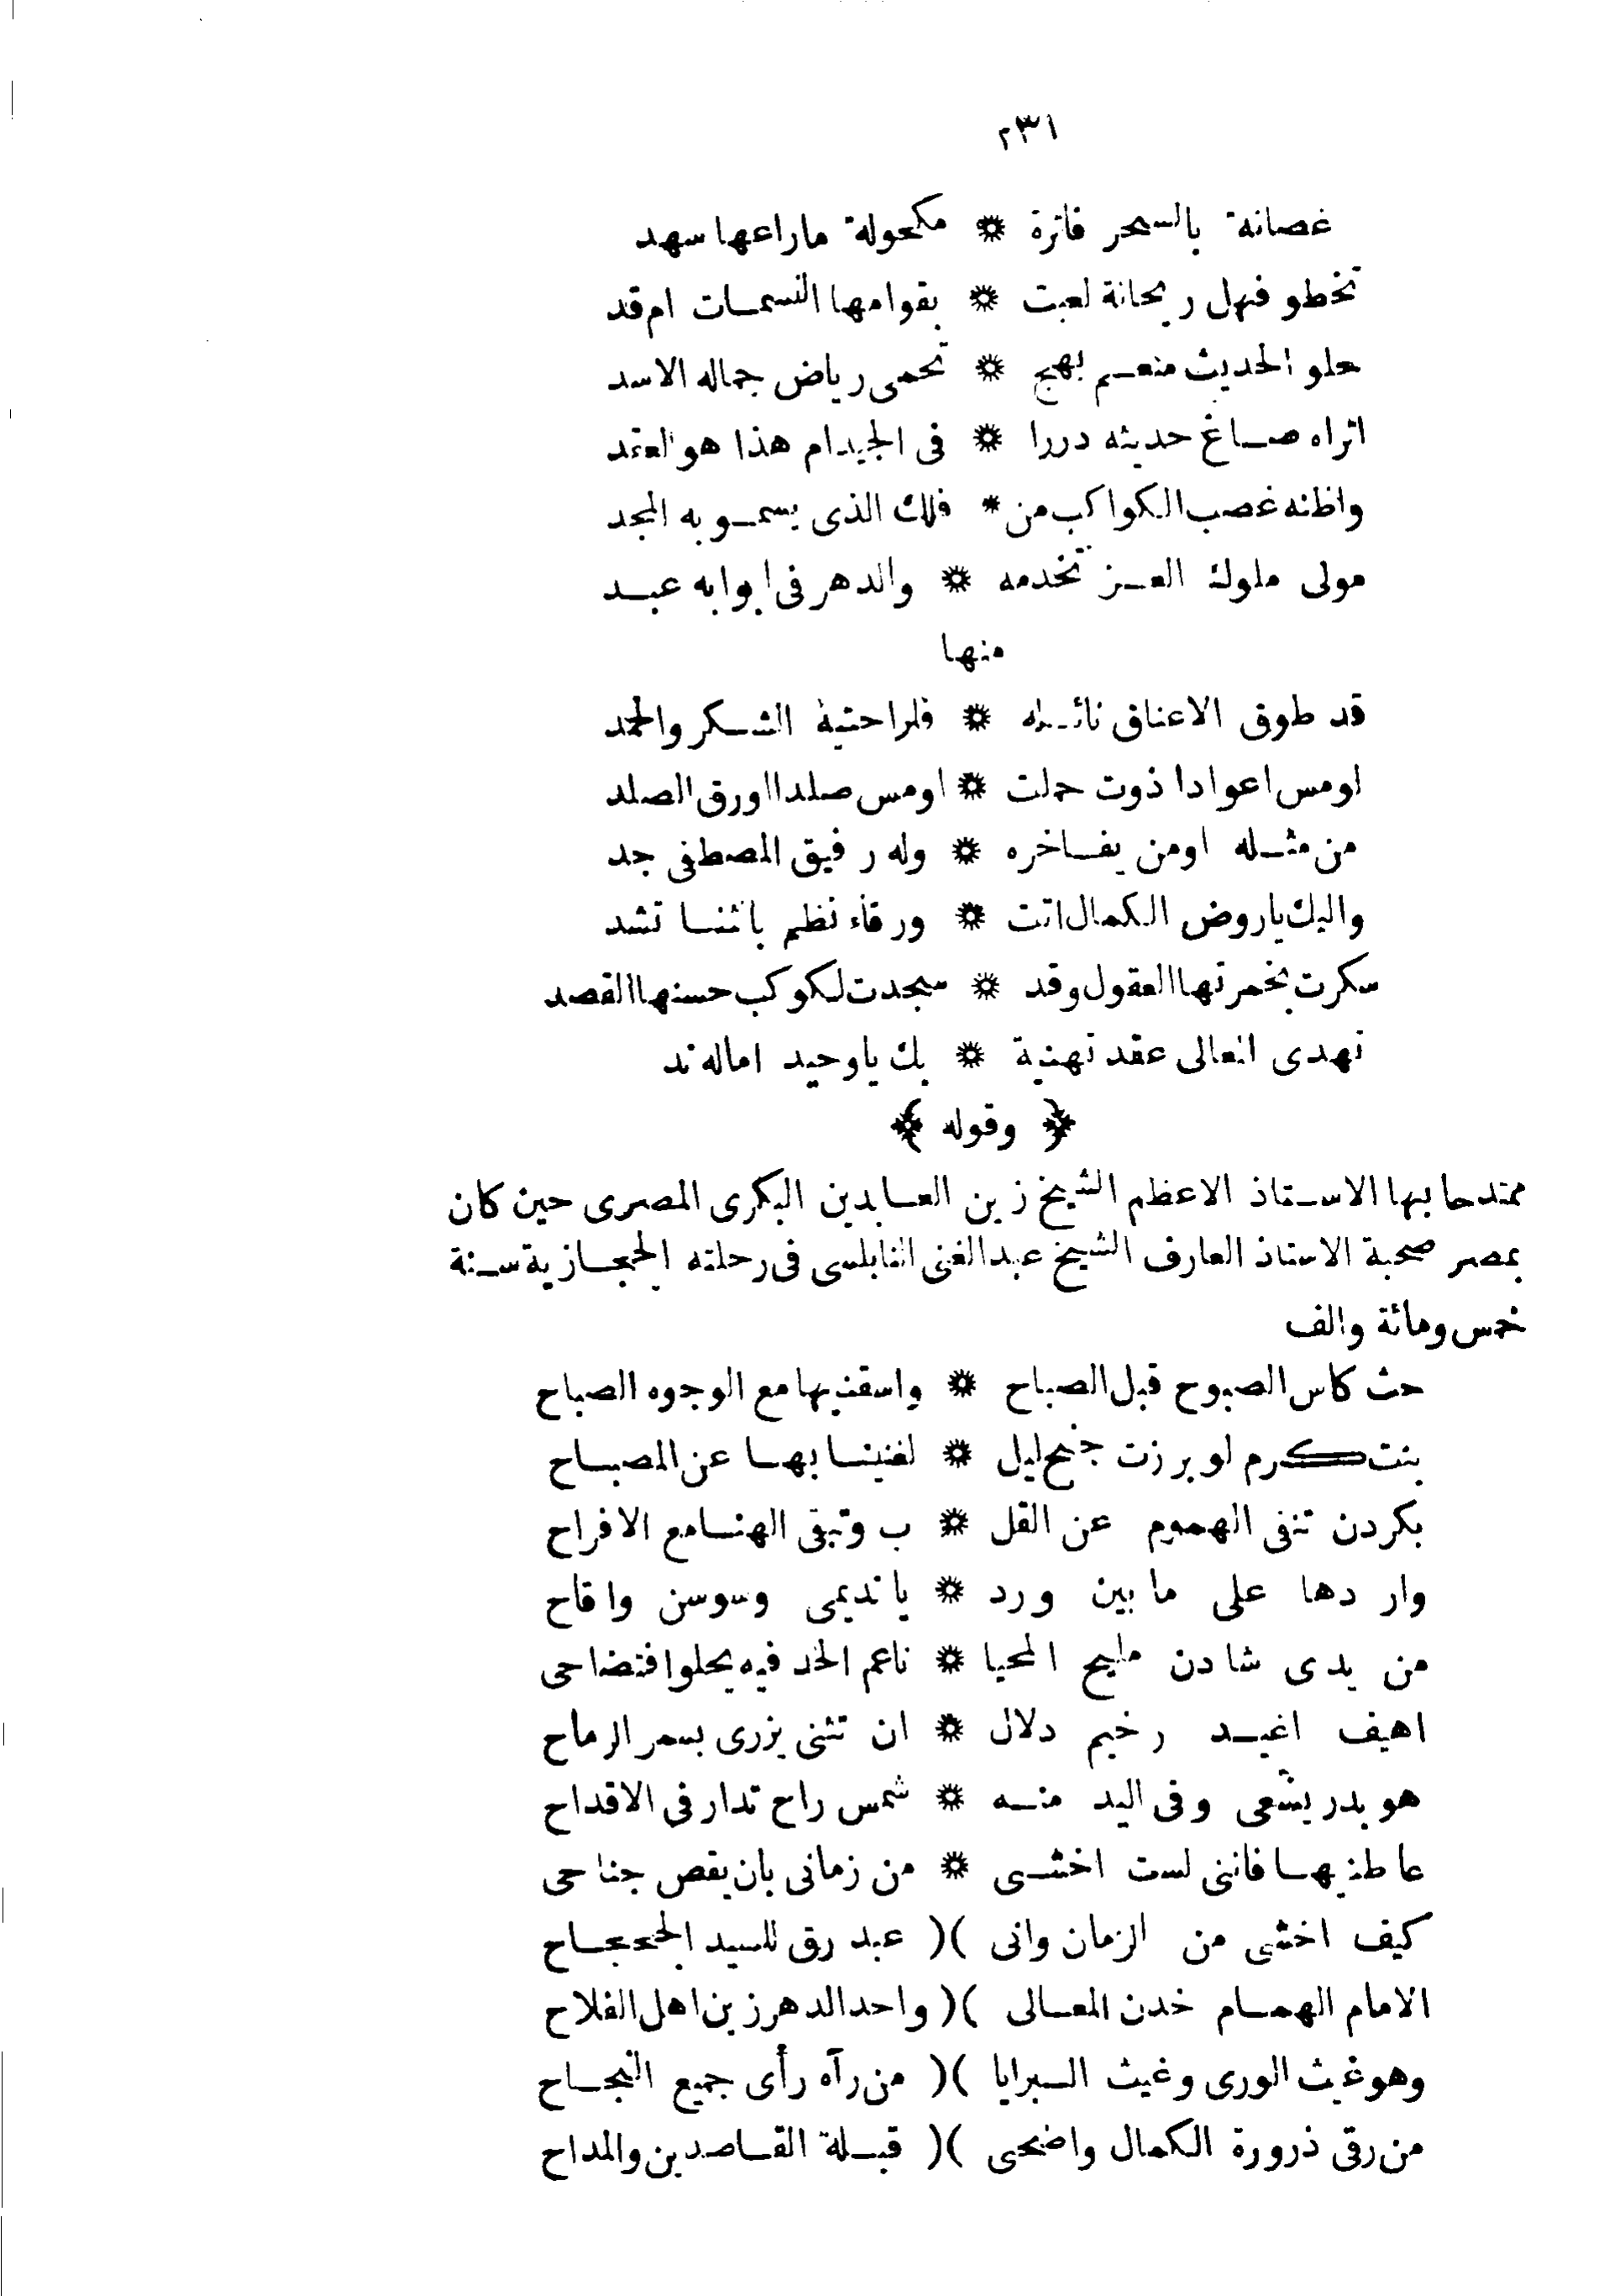 ٢٣١
غصانة بالسحر فاترة * مكحولة ماراعها سهد
تخطو فهل ريحانة لعبت * بقوامها النسمات ام قد
حلو الحديث منعم بهج * تحمى رياض جماله الاسد
اتراه صاغ حديثه دررا * فى الجيد ام هذا هو العقد
واظنه غصب الكواكب من * فلك الذى يسمو به المجد
مولى ملوك العز تخدمه * والدهر فى ابوابه عبد
منها
قد طوق الاعناق نائله * فلراحتيه الشكر والحمد
لومس اعوادا ذوت حملت * اومس صلدا اورق الصلد
من مثله اومن يفاخره * وله رفيق المصطفى جد
واليك ياروض الكمال اتت * ورقاء نظم بالثنا تشد
سكرت بخمرتها العقول وقد * سجدت لكوكب حسنها القصد
تهدى المعالى عقد تهنية * بك ياوحيد اماله ند
﴿ وقوله ﴾
ممتدحا بها الاستاذ الاعظم الشيخ زين العابدين البكرى المصرى حين كان
بمصر صحبة الاستاذ العارف الشيخ عبدالغنى النابلسى فى رحلته الحجازية سنة
خمس ومائة والف
حث كاس الصبوح قبل الصباح * واسقنيها مع الوجوه الصباح
بنت كرم لو برزت جنح ليل * لغنينا بها عن المصباح
بكردن تنفى الهموم عن القل * ب وتبقى الهنا مع الافراح
واردها على ما بين ورد * يانديمى وسوسن واقاح
من يدى شادن مليح المحيا * ناعم الخد فيه يحلوا فتضاحى
اهيف اغيد رخيم دلال * ان تثنى يزرى بسمر الرماح
هو بدر يسعى وفى اليد منه * شمس راح تدار فى الاقداح
عاطنيها فاننى لست اخشى * من زمانى بان يقص جناحى
كيف اخشى من الزمان وانى )( عبد رق للسيد الجحجاح
الامام الهمام خدن المعالى )( واحد الدهر زين اهل الفلاح
وهو غيث الورى وغيث البرايا )( من رآه رأى جميع النجاح
من رقى ذرورة الكمال واضحى )( قبلة القاصدين والمداح